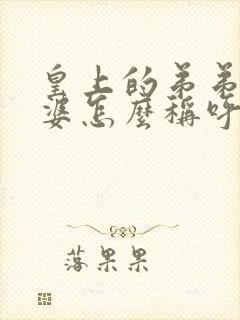 皇上的弟弟
婆怎麼稱呼
落果果